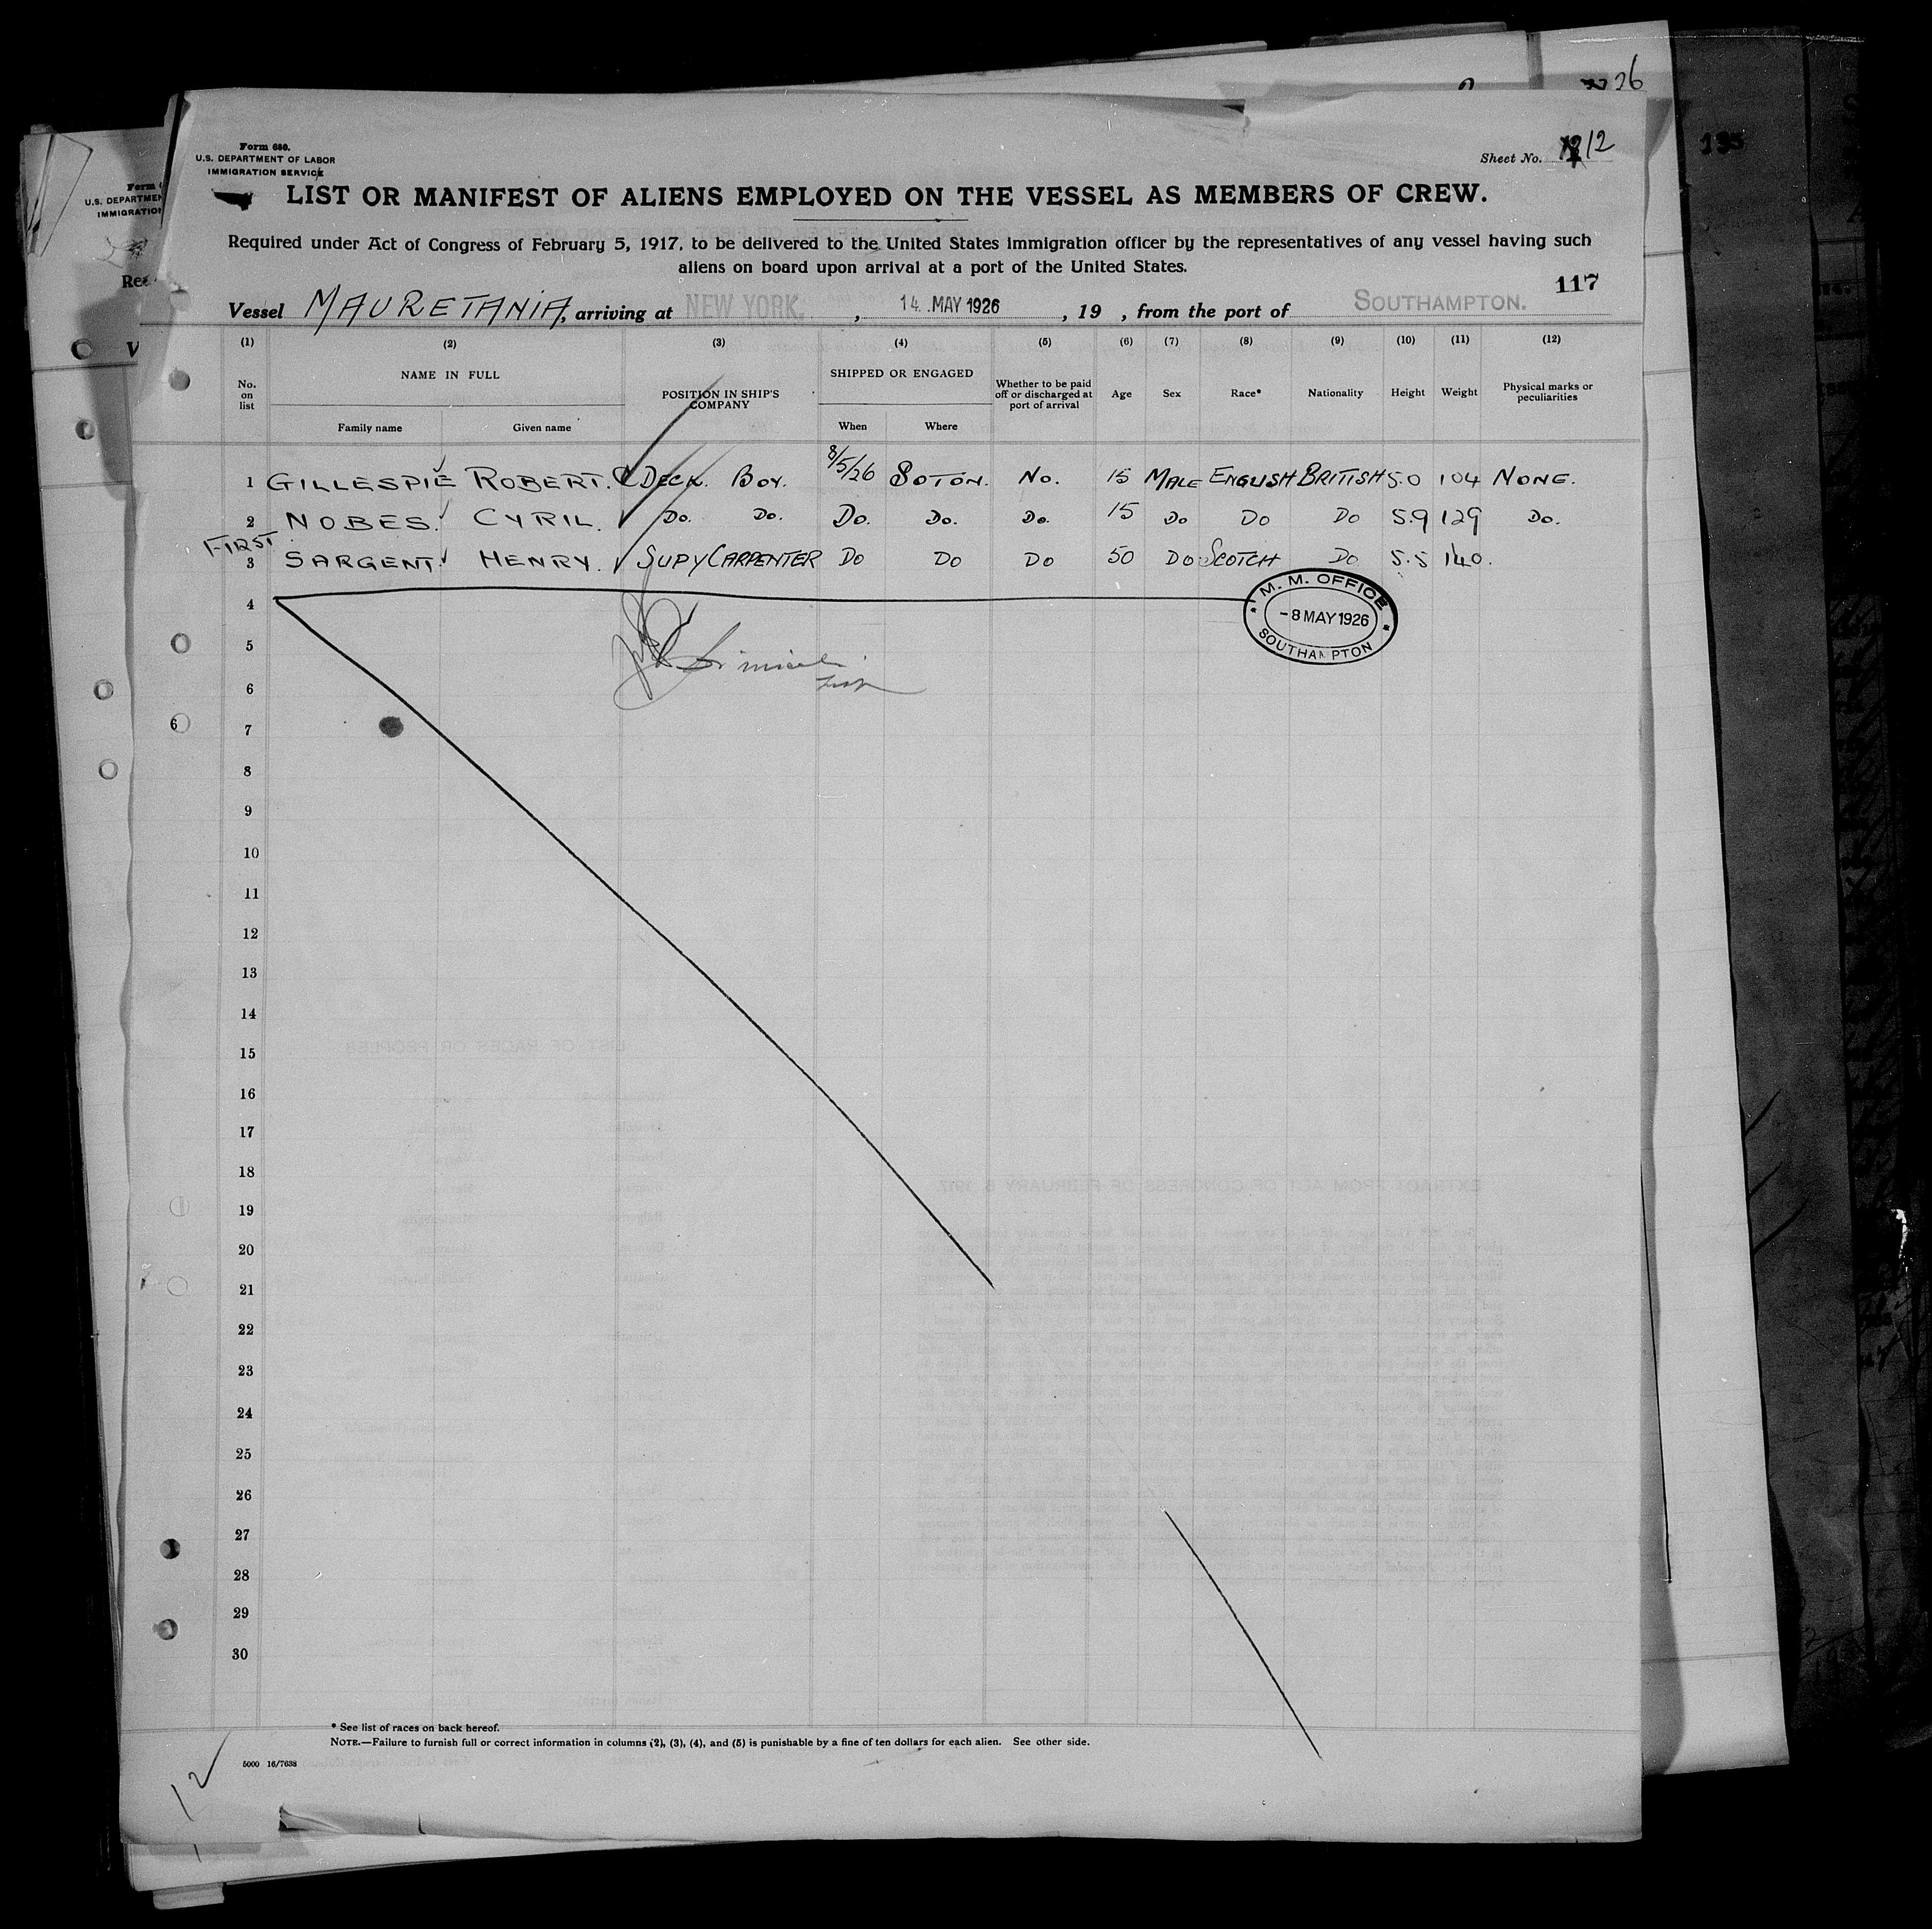 26
Form 680.
U.S. DEPARTMENT OF LABOR
IMMIGRATION SERVICE
Sheet No. 12
135
LIST OR MANIFEST OF ALIENS EMPLOYED ON THE VESSEL AS MEMBERS OF CREW.
Required under Act of Congress of February 5, 1917, to be delivered to the United States immigration officer by the representatives of any vessel having such
aliens on board upon arrival at a port of the United States.
117
Vessel MAURETANIA, arriving at NEW YORK, 14 MAY 1926, 19 , from the port of SOUTHAMPTON.
(1) (2) (3) (4) (5) (6) (7) (8) (9) (10) (11) (12)
No. on list NAME IN FULL Family name Given name POSITION IN SHIP'S COMPANY SHIPPED OR ENGAGED When Where Whether to be paid off or discharged at port of arrival Age Sex Race* Nationality Height Weight Physical marks or peculiarities
1 GILLESPIE ROBERT. DECK. BOY. 8/5/26 SOTON. NO. 15 MALE ENGLISH BRITISH 5.0 104 NONE.
2 NOBES. CYRIL. DO. DO. DO. DO. DO. 15 DO DO DO 5.9 129 DO.
FIRST
3 SARGENT. HENRY. SUPY CARPENTER DO DO DO 50 DO SCOTCH DO 5.5 140.
M. M. OFFICE
-8 MAY 1926
SOUTHAMPTON
4
5
6
7
8
9
10
11
12
13
14
15
16
17
18
19
20
21
22
23
24
25
26
27
28
29
30
* See list of races on back hereof.
NOTE.—Failure to furnish full or correct information in columns (2), (3), (4), and (5) is punishable by a fine of ten dollars for each alien. See other side.
5000 16/7638
12